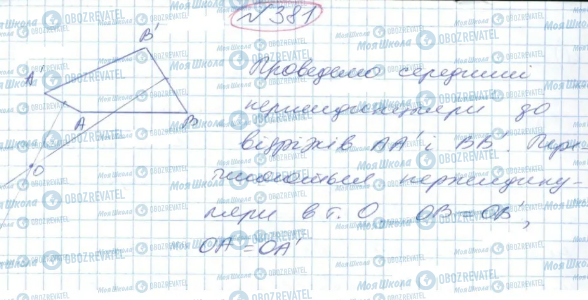 №381
B'
A'
A
B
O
Проведемо серединні
перпендикуляри до
відрізків AA' і BB'. Пере-
тинаються перпендику-
ляри в т. O. OB = OB',
OA = OA'
Моя Школа
OBOZREVATEL